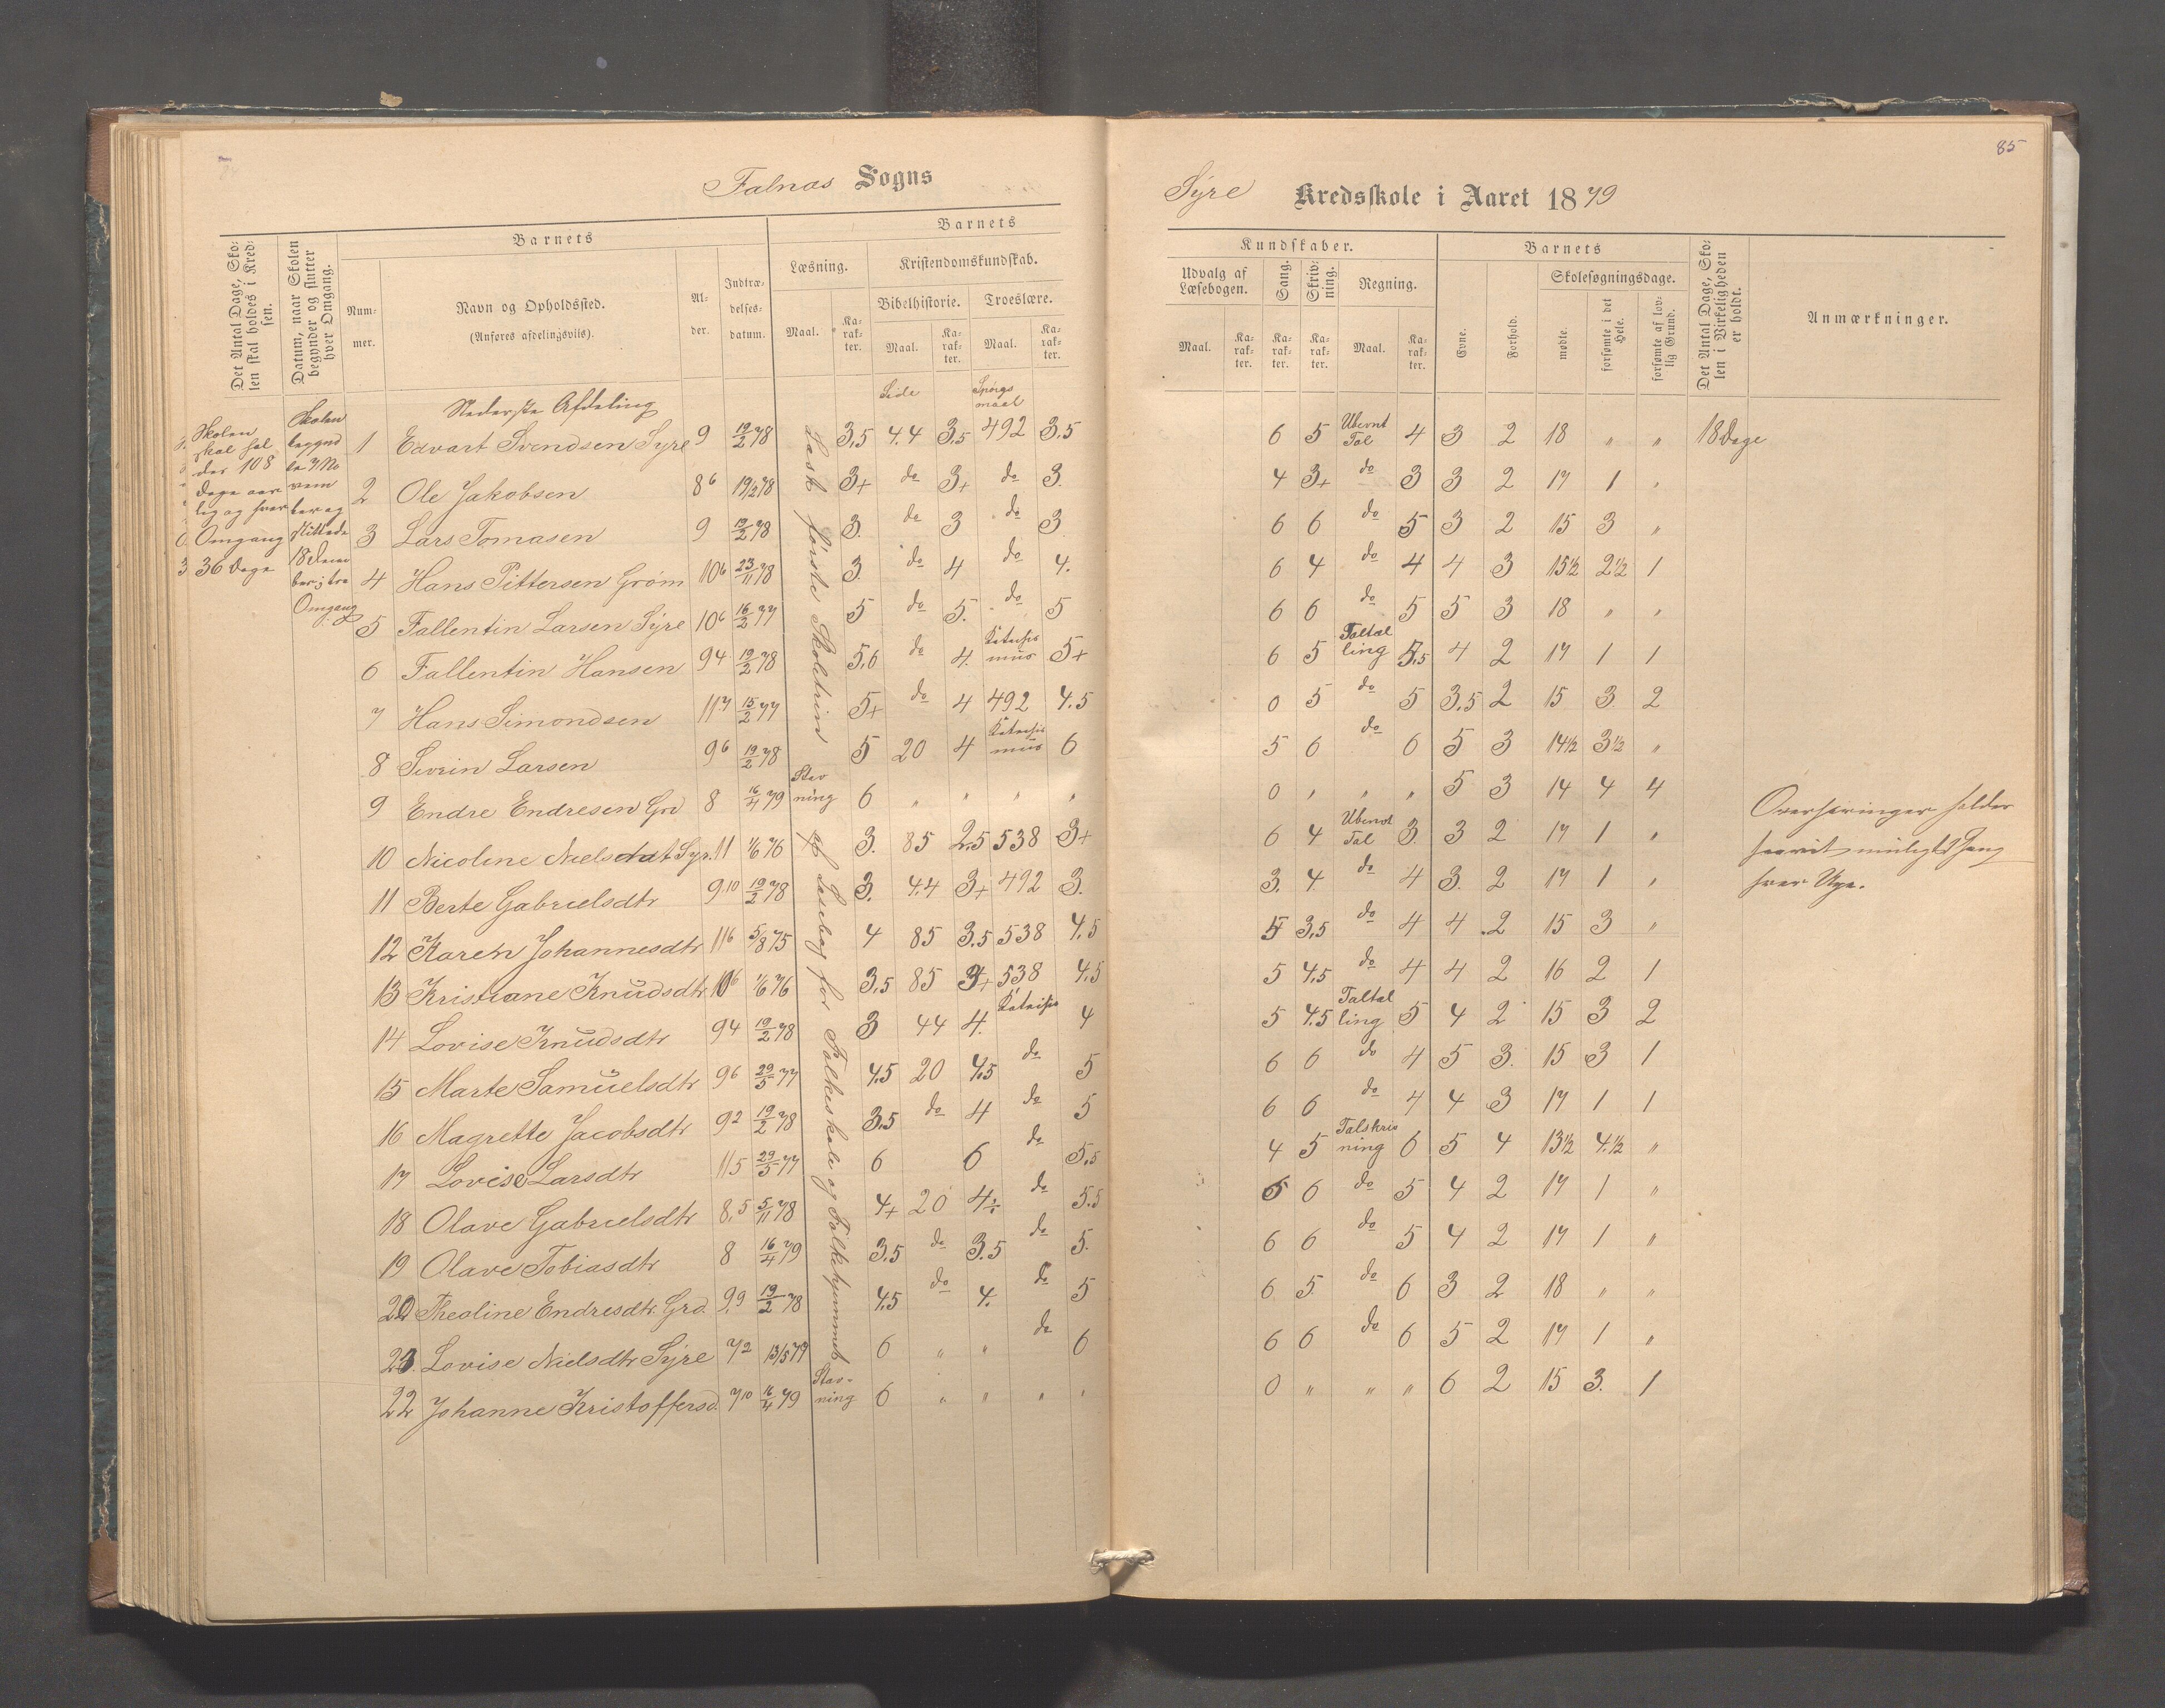 85
Falnas Sogns
Syre Kredsskole i Aaret 1879
Det Antal Dage, Skolen skal holdes i Kredsen.
Datum, naar Skolen begynder og slutter hver Omgang.
Barnets
Nummer.
Navn og Opholdssted.
(Anføres afdelingsviis).
Alder.
Indtrædelsesdatum.
Barnets
Læsning.
Maal.
Karakter.
Kristendomskundskab.
Bibelhistorie.
Maal.
Karakter.
Troeslære.
Maal.
Karakter.
Kundskaber.
Udvalg af Læsebogen.
Maal.
Karakter.
Sang.
Karakter.
Skrivning.
Karakter.
Regning.
Maal.
Karakter.
Barnets
Evne.
Forhold.
Skolesøgningsdage.
mødte.
forsømte i det Hele.
forsømte af lovlig Grund.
Det Antal Dage, Skolen i Virkeligheden er holdt.
Anmærkninger.
Skolen skal holdes 108 Dage aarlig og hver Omgang 36 Dage
Skolen
Omgang
Nederste Afdeling
Side
Spørgsmaal
Læst første Skoletrin af Læsebog for Folkeskole og Folkehjemmet
1 Edvart Svendsen Syre 9 19/2 78 3,5 4.4 3,5 492 3,5 6 5 Ubevnt Tal 4 3 2 18 " " 18 Dage
2 Ole Jakobsen 8 6 19/2 78 3+ do 3+ do 3. 4 3+ do 3 3 2 17 1 "
3 Lars Tomasen 9 19/2 78 3. do 3 do 3 6 6 do 5 3 2 15 3 "
4 Hans Pittersen Grøm 10 6 23/11 78 3 do 4 do 4. 6 4 do 4 4 3 15 1/2 2 1/2 1
5 Fallentin Larsen Syre 10 6 16/2 77 5 do 5. do 5 6 6 do 5 5 3 18 " "
6 Fallentin Hansen 9 4 19/2 78 5,6 do 4. Katechismus 5+ 6 5 Taltælling 5,5 4 2 17 1 1
7 Hans Simondsen 11 7 15/2 77 5+ do 4 492 4.5 0 5 do 5 3,5 2 15 3 2
8 Sivrin Larsen 9 6 19/2 78 5 20 4 Katechismus 6 5 6 do 6 5 3 14 1/2 3 1/2 "
9 Endre Endresen Grd 8 16/4 79 Stavning 6 " " " " 0 " " " 5 3 14 4 4
10 Nicoline Nielsdat Syr. 11 1/6 76 3. 85 2.5 538 3+ 6 4 Ubevnt Tal 3. 3 2 17 1 "
11 Berte Gabrielsdtr 9 10 19/2 78 3. 4.4 3+ 492 3. 3. 4 do 4 3. 2 17 1 "
12 Karen Johannesdtr 11 6 5/8 75 4 85 3.5 538 4,5 5 3,5 do 4 4 2 15 3 "
13 Kristiane Knudsdtr 10 6 1/6 76 3,5 85 3+ 538 4.5 5 4,5 do 4 4 2 16 2 1
14 Lovise Knudsdtr 9 4 19/2 78 3 44 4. 4 5 4.5 Taltælling 5 4 2 15 3 2
15 Marte Samuelsdtr 9 6 29/5 77 4,5 20 4,5 do 5 6 6 do 4 5 3. 15 3 1
16 Magrette Jacobsdtr 9 2 19/2 78 3,5 do 4 do 5 6 6 do 4 4 3 17 1 1
17 Lovise Larsdtr 11 5 29/5 77 6 6 do 5,5 4 5 Talskrivning 6 5 4 13 1/2 4 1/2 "
18 Olave Gabrielsdtr 8,5 5/11 78 4+ 20 4÷ do 5.5 5 6 do 5 4 2 17 1 "
19 Olave Tobiasdtr 8 16/4 79 3.5 do 3.5 do 5. 6 6 do 5 4 2 17 1 "
20 Theoline Endresdtr. Grd. 9,9 19/2 78 4,5 do 4. do 5 6 5. do 6 3 2 18 " "
23. Lovise Nielsdtr Syre 7 2 13/5 79 6 " " do 6 6 6 do 6 5 2 17 1 "
22 Johanne Kristoffersd. 7 10 16/4 79 Stavning 6 " " " " 0 " " " 6 2 15 3. 1
hver Uge.